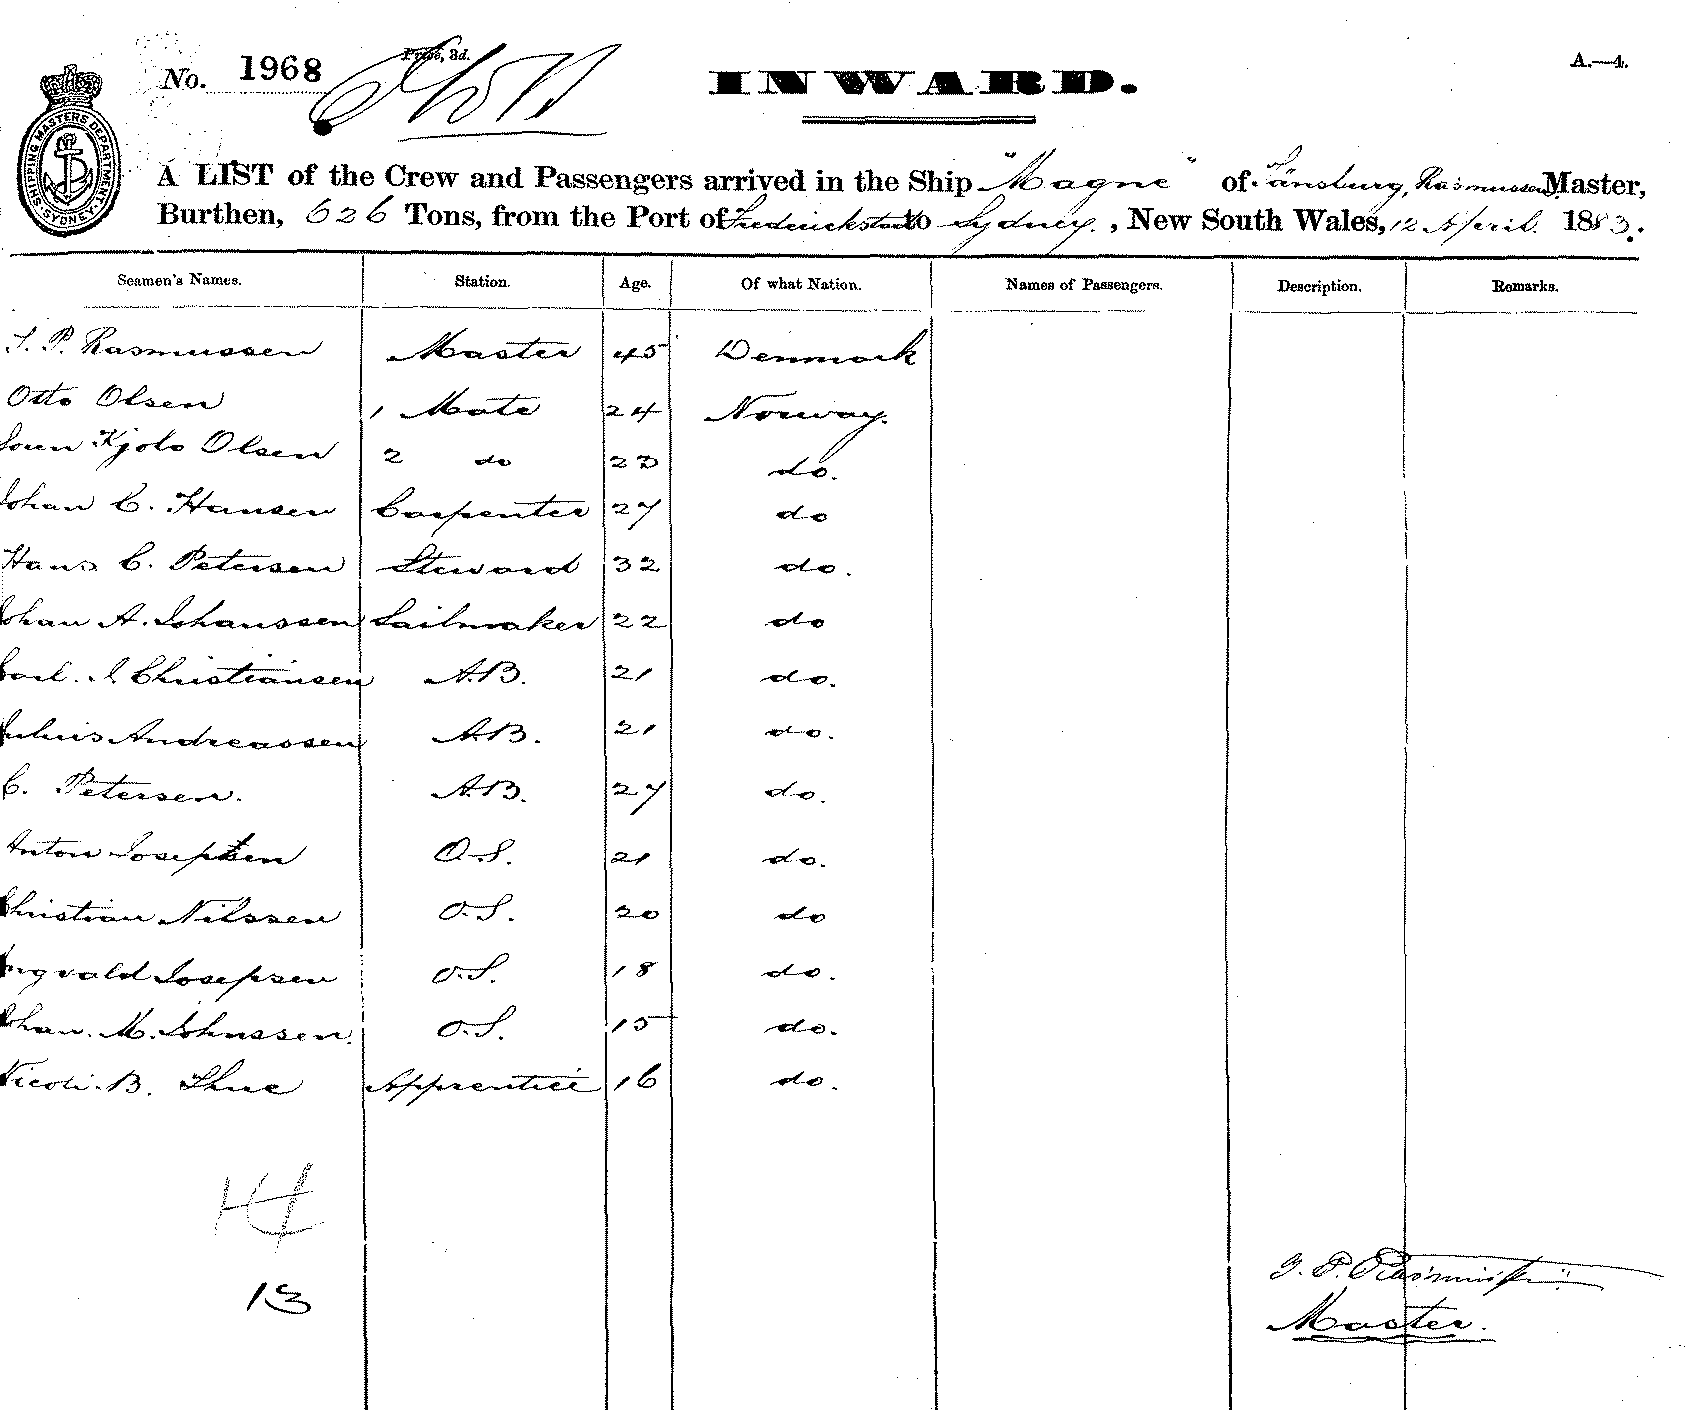 No. 1968
Price, 3d.
INWARD.
A.—4.
SHIPPING MASTERS DEPARTMENT. SYDNEY.
A LIST of the Crew and Passengers arrived in the Ship "Magne" of Tönsburg, Rasmussen Master,
Burthen, 626 Tons, from the Port of Frederickstadt to Sydney, New South Wales, 12 April 1883.
Seamen's Names. Station. Age. Of what Nation. Names of Passengers. Description. Remarks.
J. P. Rasmussen Master 45 Denmark
Otto Olsen 1 Mate 24 Norway.
Olsen 2 do 23 do.
Johan C. Hansen Carpenter 27 do
Hans C. Petersen Steward 32 do.
Johan A. Johanssen Sailmaker 22 do
Carl. J Christiansen A.B. 21 do.
Julius Andreassen A.B. 21 do.
C. Petersen. A.B. 27 do.
Anton Josephsen O.S. 21 do.
Christian Nilssen O.S. 20 do
Ingvald Josepsen O.S. 18 do.
Johan. M. Johnssen. O.S. 15 do.
Nicoli. B. Thue Apprentice 16 do.
14
13
J. P. Rasmussen
Master.